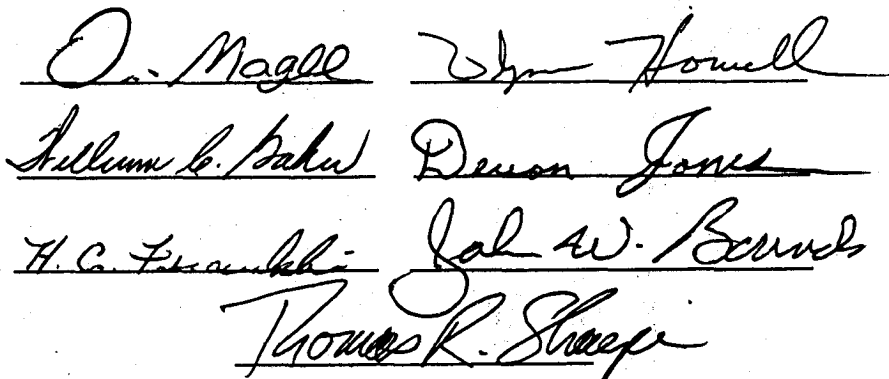 O. Magee Wynn Howell
William C. Baker Devon Jones
H. C. Franklin John W. Bounds
Thomas R. Sharpe